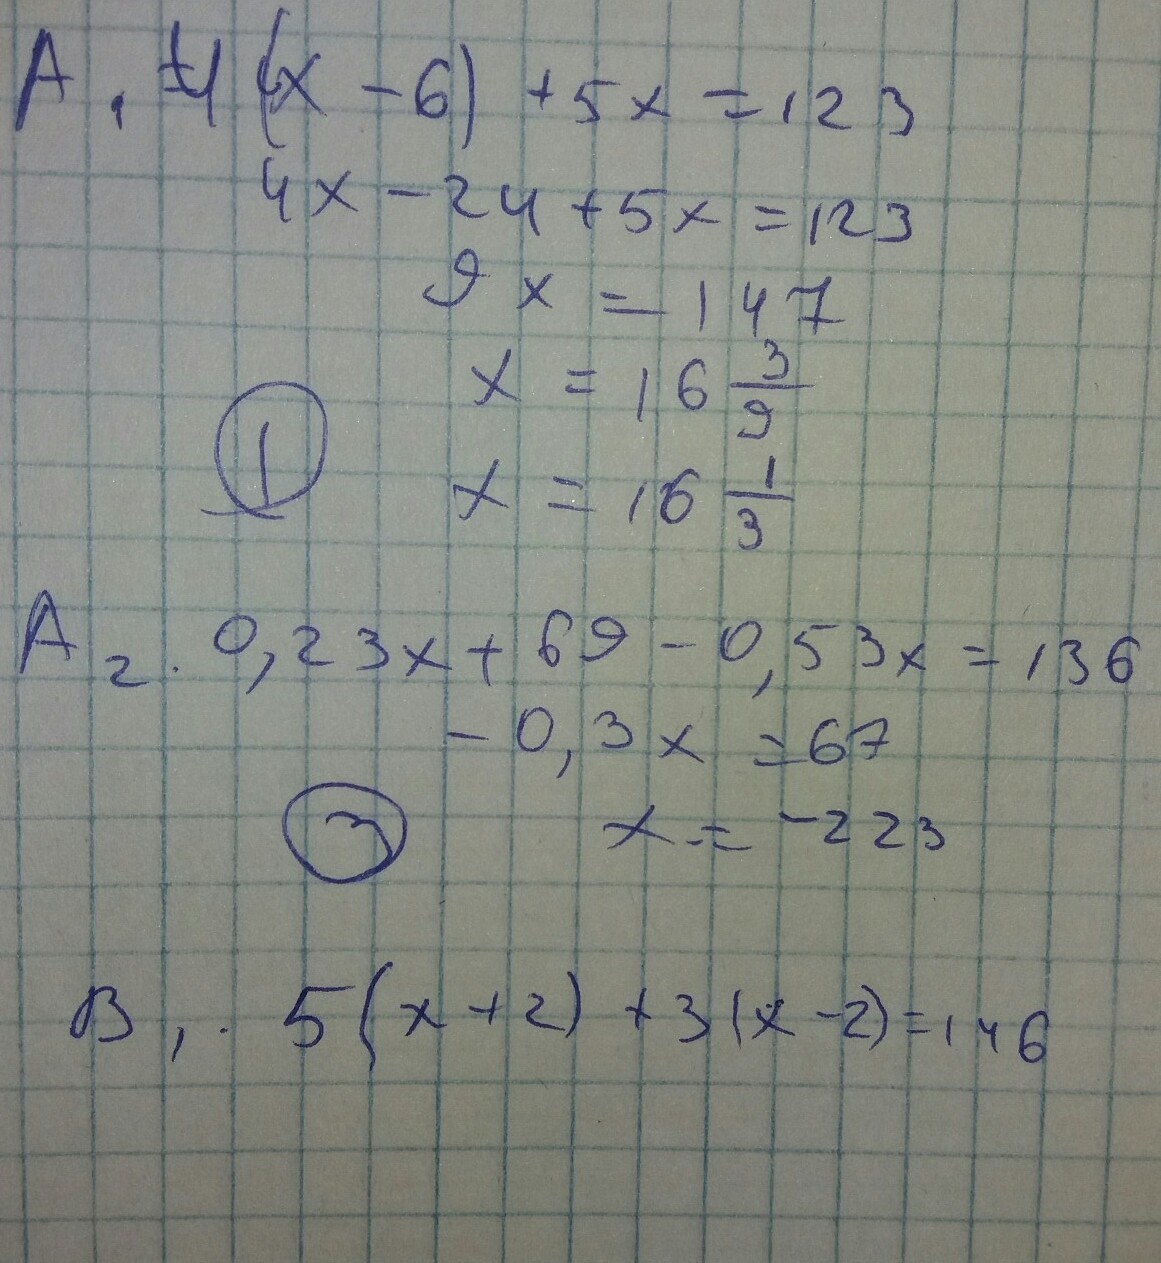 A₁ 4(x - 6) + 5x = 123
4x - 24 + 5x = 123
9x = 147
x = 16 3/9
① x = 16 1/3
A₂. 0,23x + 69 - 0,53x = 136
- 0,3x = 67
③ x = -223
B₁. 5(x + 2) + 3(x - 2) = 146